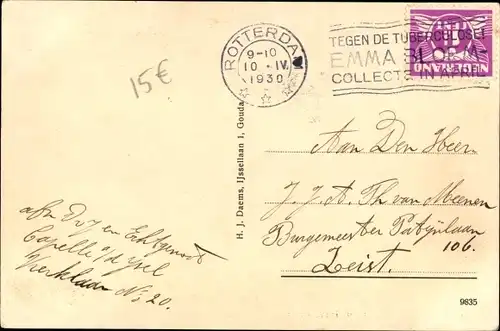 ROTTERDAM
9-10
10 · IV
1930
TEGEN DE TUBERCULOSE!
EMMA BLOEM-
COLLECTE IN APRIL
15€
H. J. Daems, IJssellaan 1, Gouda
Aan Den Heer
J. J. A. Th van Meenen
Burgemeester Patijnlaan
106.
Zeist.
afz. en Echtgenoot
Capelle a/d ysel
No: 20.
9835